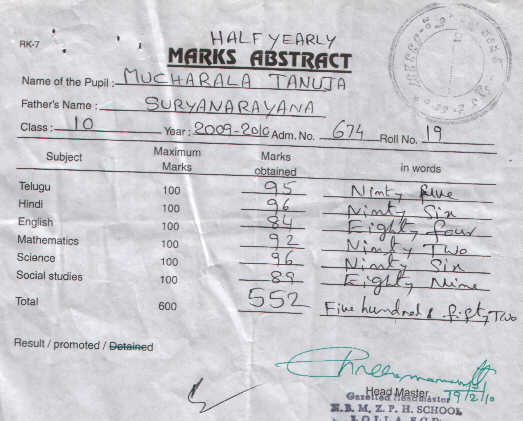 HALF YEARLY
RK-7
MARKS ABSTRACT
Name of the Pupil : MUCHARALA TANUJA
Father's Name : SURYANARAYANA
Class : 10 Year : 2009-2010 Adm. No. 674 Roll No. 19
Subject Maximum Marks Marks obtained in words
Telugu 100 95 Ninty five
Hindi 100 96 Ninty Six
English 100 84 Eighty four
Mathematics 100 92 Ninty Two
Science 100 96 Ninty Six
Social studies 100 89 Eighty Nine
Total 600 552 Five hundred & fifty Two
Result / promoted / Detained
Head Master 19/2/10
Gazetted Headmaster
N.B. M. Z. P. H. SCHOOL